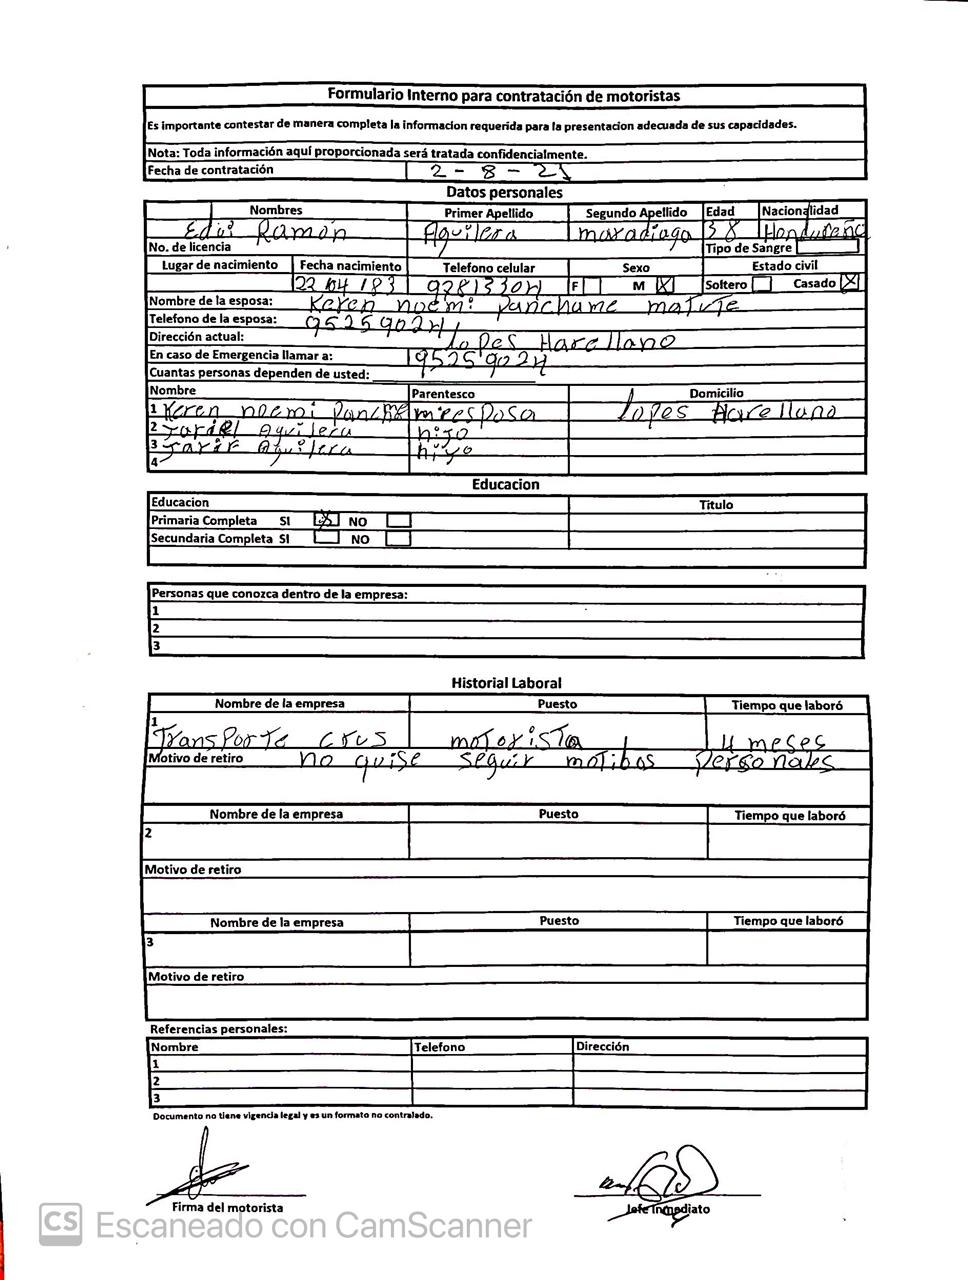 Formulario Interno para contratación de motoristas
Es importante contestar de manera completa la informacion requerida para la presentacion adecuada de sus capacidades.
Nota: Toda información aquí proporcionada será tratada confidencialmente.
Fecha de contratación 2 - 8 - 21
Datos personales
Nombres Primer Apellido Segundo Apellido Edad Nacionalidad
Edui Ramón Aguilera maradiaga 38 Hondureña
No. de licencia Tipo de Sangre
Lugar de nacimiento Fecha nacimiento Telefono celular Sexo Estado civil
22 04 183 F M X Soltero Casado X
Nombre de la esposa: Keren noemi panchame
Telefono de la esposa: 95259024
Dirección actual: lopes Harellano
En caso de Emergencia llamar a: 95259024
Cuantas personas dependen de usted:
Nombre Parentesco Domicilio
1 Keren noemi Panchme mi esposa lopes Harellano
2 Aguilera hijo
3 Aguilera hijo
4
Educacion
Educacion Titulo
Primaria Completa SI X NO
Secundaria Completa SI NO
Personas que conozca dentro de la empresa:
1
2
3
Historial Laboral
Nombre de la empresa Puesto Tiempo que laboró
1
Transporte crus motorista 4 meses
Motivo de retiro no quise seguir motibos personales
Nombre de la empresa Puesto Tiempo que laboró
2
Motivo de retiro
Nombre de la empresa Puesto Tiempo que laboró
3
Motivo de retiro
Referencias personales:
Nombre Telefono Dirección
1
2
3
Documento no tiene vigencia legal y es un formato no contralado.
Firma del motorista Jefe Inmediato
CS Escaneado con CamScanner